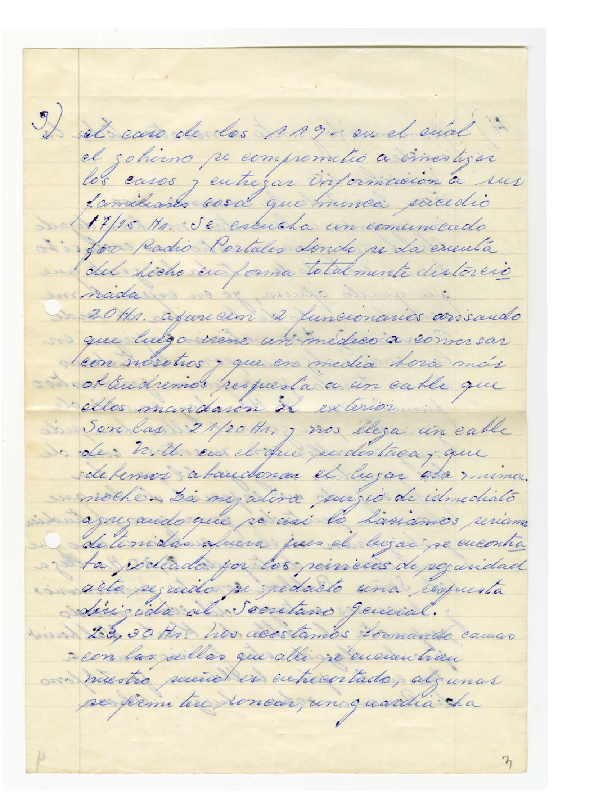 3)
el caso de los 119. en el cual
el gobierno se comprometio a investigar
los casos y entregar información a sus
familiares cosa que nunca sucedio
17/15 Hr. Se escucha un comunicado
por Radio Portales donde se da cuenta
del hecho en forma totalmente distorcio
nada.
20 Hr. aparecen 2 funcionarios avisando
que luego viene un médico a conversar
con nosotros y que en media hora más
obtendremos respuesta a un cable que
ellos mandaron al exterior
Son las 21/20 Hr. y nos llega un cable
de en el que se destaca y que
debemos abandonar el lugar esta misma
noche. La negativa surgio de inmediato
agregando que si así lo haciamos seriamos
detenidas afuera pues el lugar se encontra
ba rodeado por los servicios de seguridad
acto seguido se redacto una respuesta
dirigida al Secretario General.
23,30 Hr. Nos acostamos formando camas
con las sillas que alli se encuentran
nuestro sueño es entrecortado, algunas
se permiten roncar, un guardia da
4
3